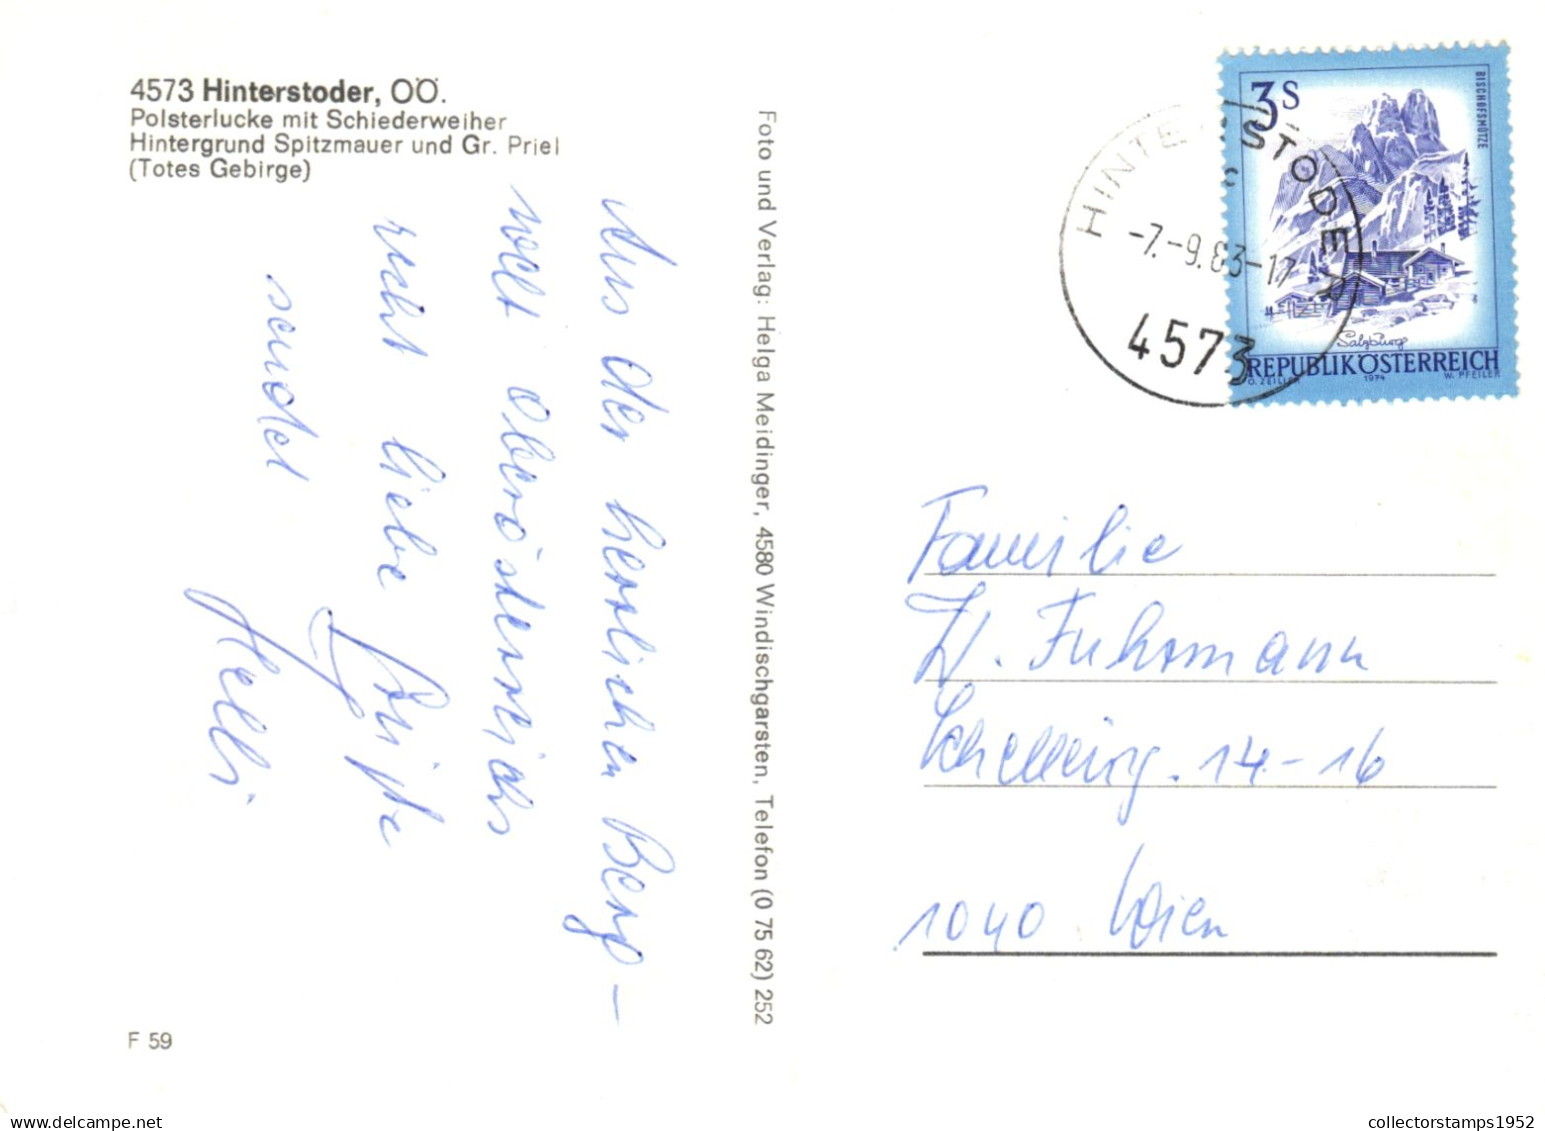 4573 Hinterstoder, OÖ.
Polsterlucke mit Schiederweiher
Hintergrund Spitzmauer und Gr. Priel
(Totes Gebirge)
Aus der herrlichen Berg-
welt Oberösterreichs
recht liebe Grüße
sendet
Helli
F 59
Foto und Verlag: Helga Meidinger, 4580 Windischgarsten, Telefon (0 75 62) 252
HINTERSTODER
-7.-9.83-17
4573
3S
BISCHOFSMÜTZE
Salzburg
REPUBLIK ÖSTERREICH
O. ZEILLER 1974 W. PFEILER
Familie
W. Fuhrmann
Schelling. 14-16
1040 Wien
collectorstamps1952